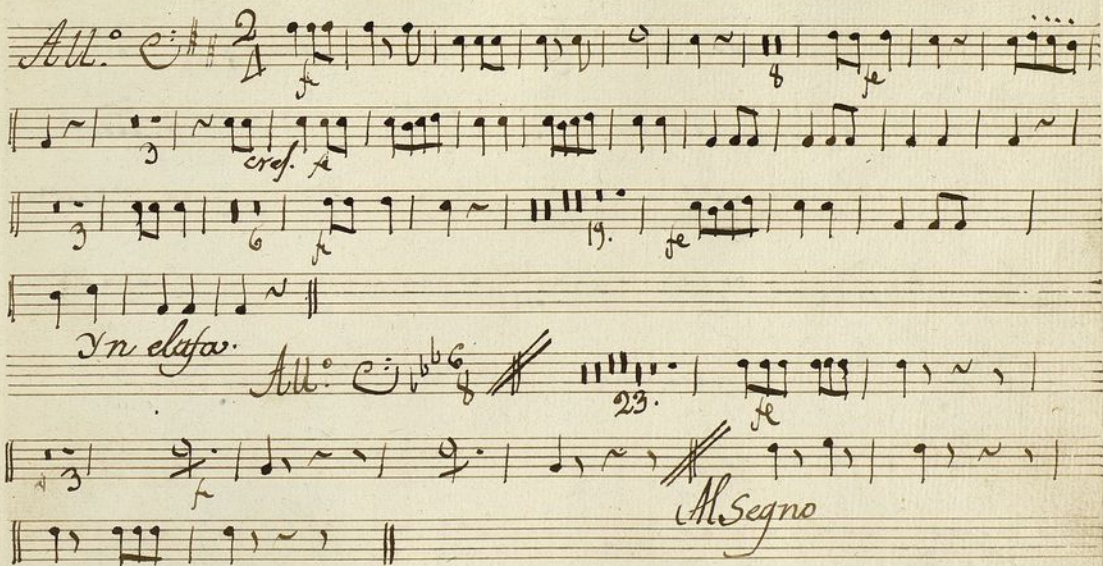 All.º 2/4
fe 8 fe
3 cresc. fe
3 6 fe 19. fe
Yn elafa.
All.º 6/8 23. fe
3 f
Al Segno